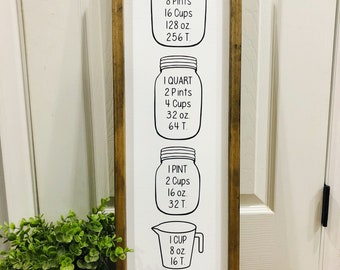 8 Pints
16 Cups
128 oz.
256 T.
1 QUART
2 Pints
4 Cups
32 oz.
64 T.
1 PINT
2 Cups
16 oz.
32 T
1 CUP
8 oz
16 T.